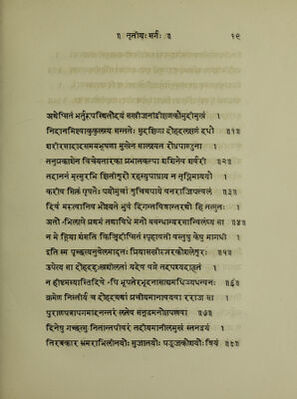 ॥ तृतीयः सर्गः ॥ १९
अथेप्सितं भर्तुरुपस्थितोदयं सखीजनोद्वीक्षणकौमुदीमुखं ।
निदानमिक्ष्वाकुकुलस्य संततेः सुदक्षिणा दौर्हृदलक्षणं दधौ ॥१॥
शरीरसादादसमग्रभूषणा मुखेन सालक्ष्यत रोध्रपाण्डुना ।
तनुप्रकाशेन विचेयतारका प्रभातकल्पा शशिनेव शर्वरी ॥२॥
तदाननं मृत्सुरभि क्षितीश्वरो रहस्युपाघ्राय न तृप्तिमाययौ ।
करीव सिक्तं पृषतैः पयोमुचां शुचिव्यपाये वनराजिपल्वलं ॥३॥
दिवं मरुत्वानिव भोक्ष्यते भुवं दिगन्तविश्रान्तरथो हि तत्सुतः ।
अतो ऽभिलाषे प्रथमं तथाविधे मनो बबन्धान्यरसान्विलङ्घ्य सा ॥४॥
न मे ह्रिया शंसति किंचिदीप्सितं स्पृहावती वस्तुषु केषु मागधी ।
इति स्म पृच्छत्यनुवेलमादृतः प्रियासखीरुत्तरकोशलेश्वरः ॥५॥
उपेत्य सा दोहददुःखशीलतां यदेव वव्रे तदपश्यदाहृतं ।
न हीष्टमस्य त्रिदिवे ऽपि भूपतेरभूदनासाद्यमधिज्यधन्वनः ॥६॥
क्रमेण निस्तीर्य च दोहदव्यथां प्रचीयमानावयवा रराज सा ।
पुराणपत्त्रापगमादनन्तरं लतेव संनद्धमनोज्ञपल्लवा ॥७॥
दिनेषु गच्छत्सु नितान्तपीवरं तदीयमानीलमुखं स्तनद्वयं ।
तिरश्चकार भ्रमराभिलीनयोः सुजातयोः पङ्कजकोशयोः श्रियं ॥८॥